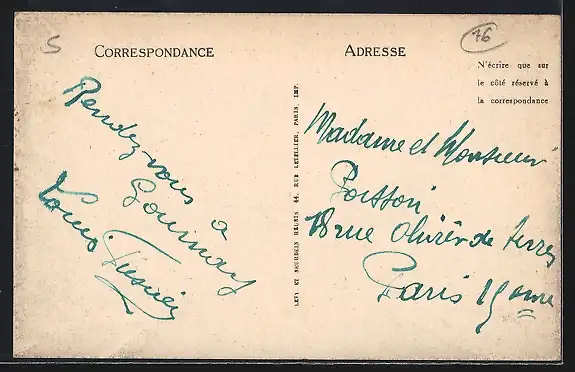 5
76
CORRESPONDANCE
ADRESSE
N'écrire que sur
le côté réservé à
la correspondance
Rendez-vous à
Gournay
Louis
LEVY ET NEURDEIN RÉUNIS, 44, RUE LETELLIER, PARIS, IMP.
Madame et Monsieur
Poisson
18 rue Olivier de Serres
Paris 15eme